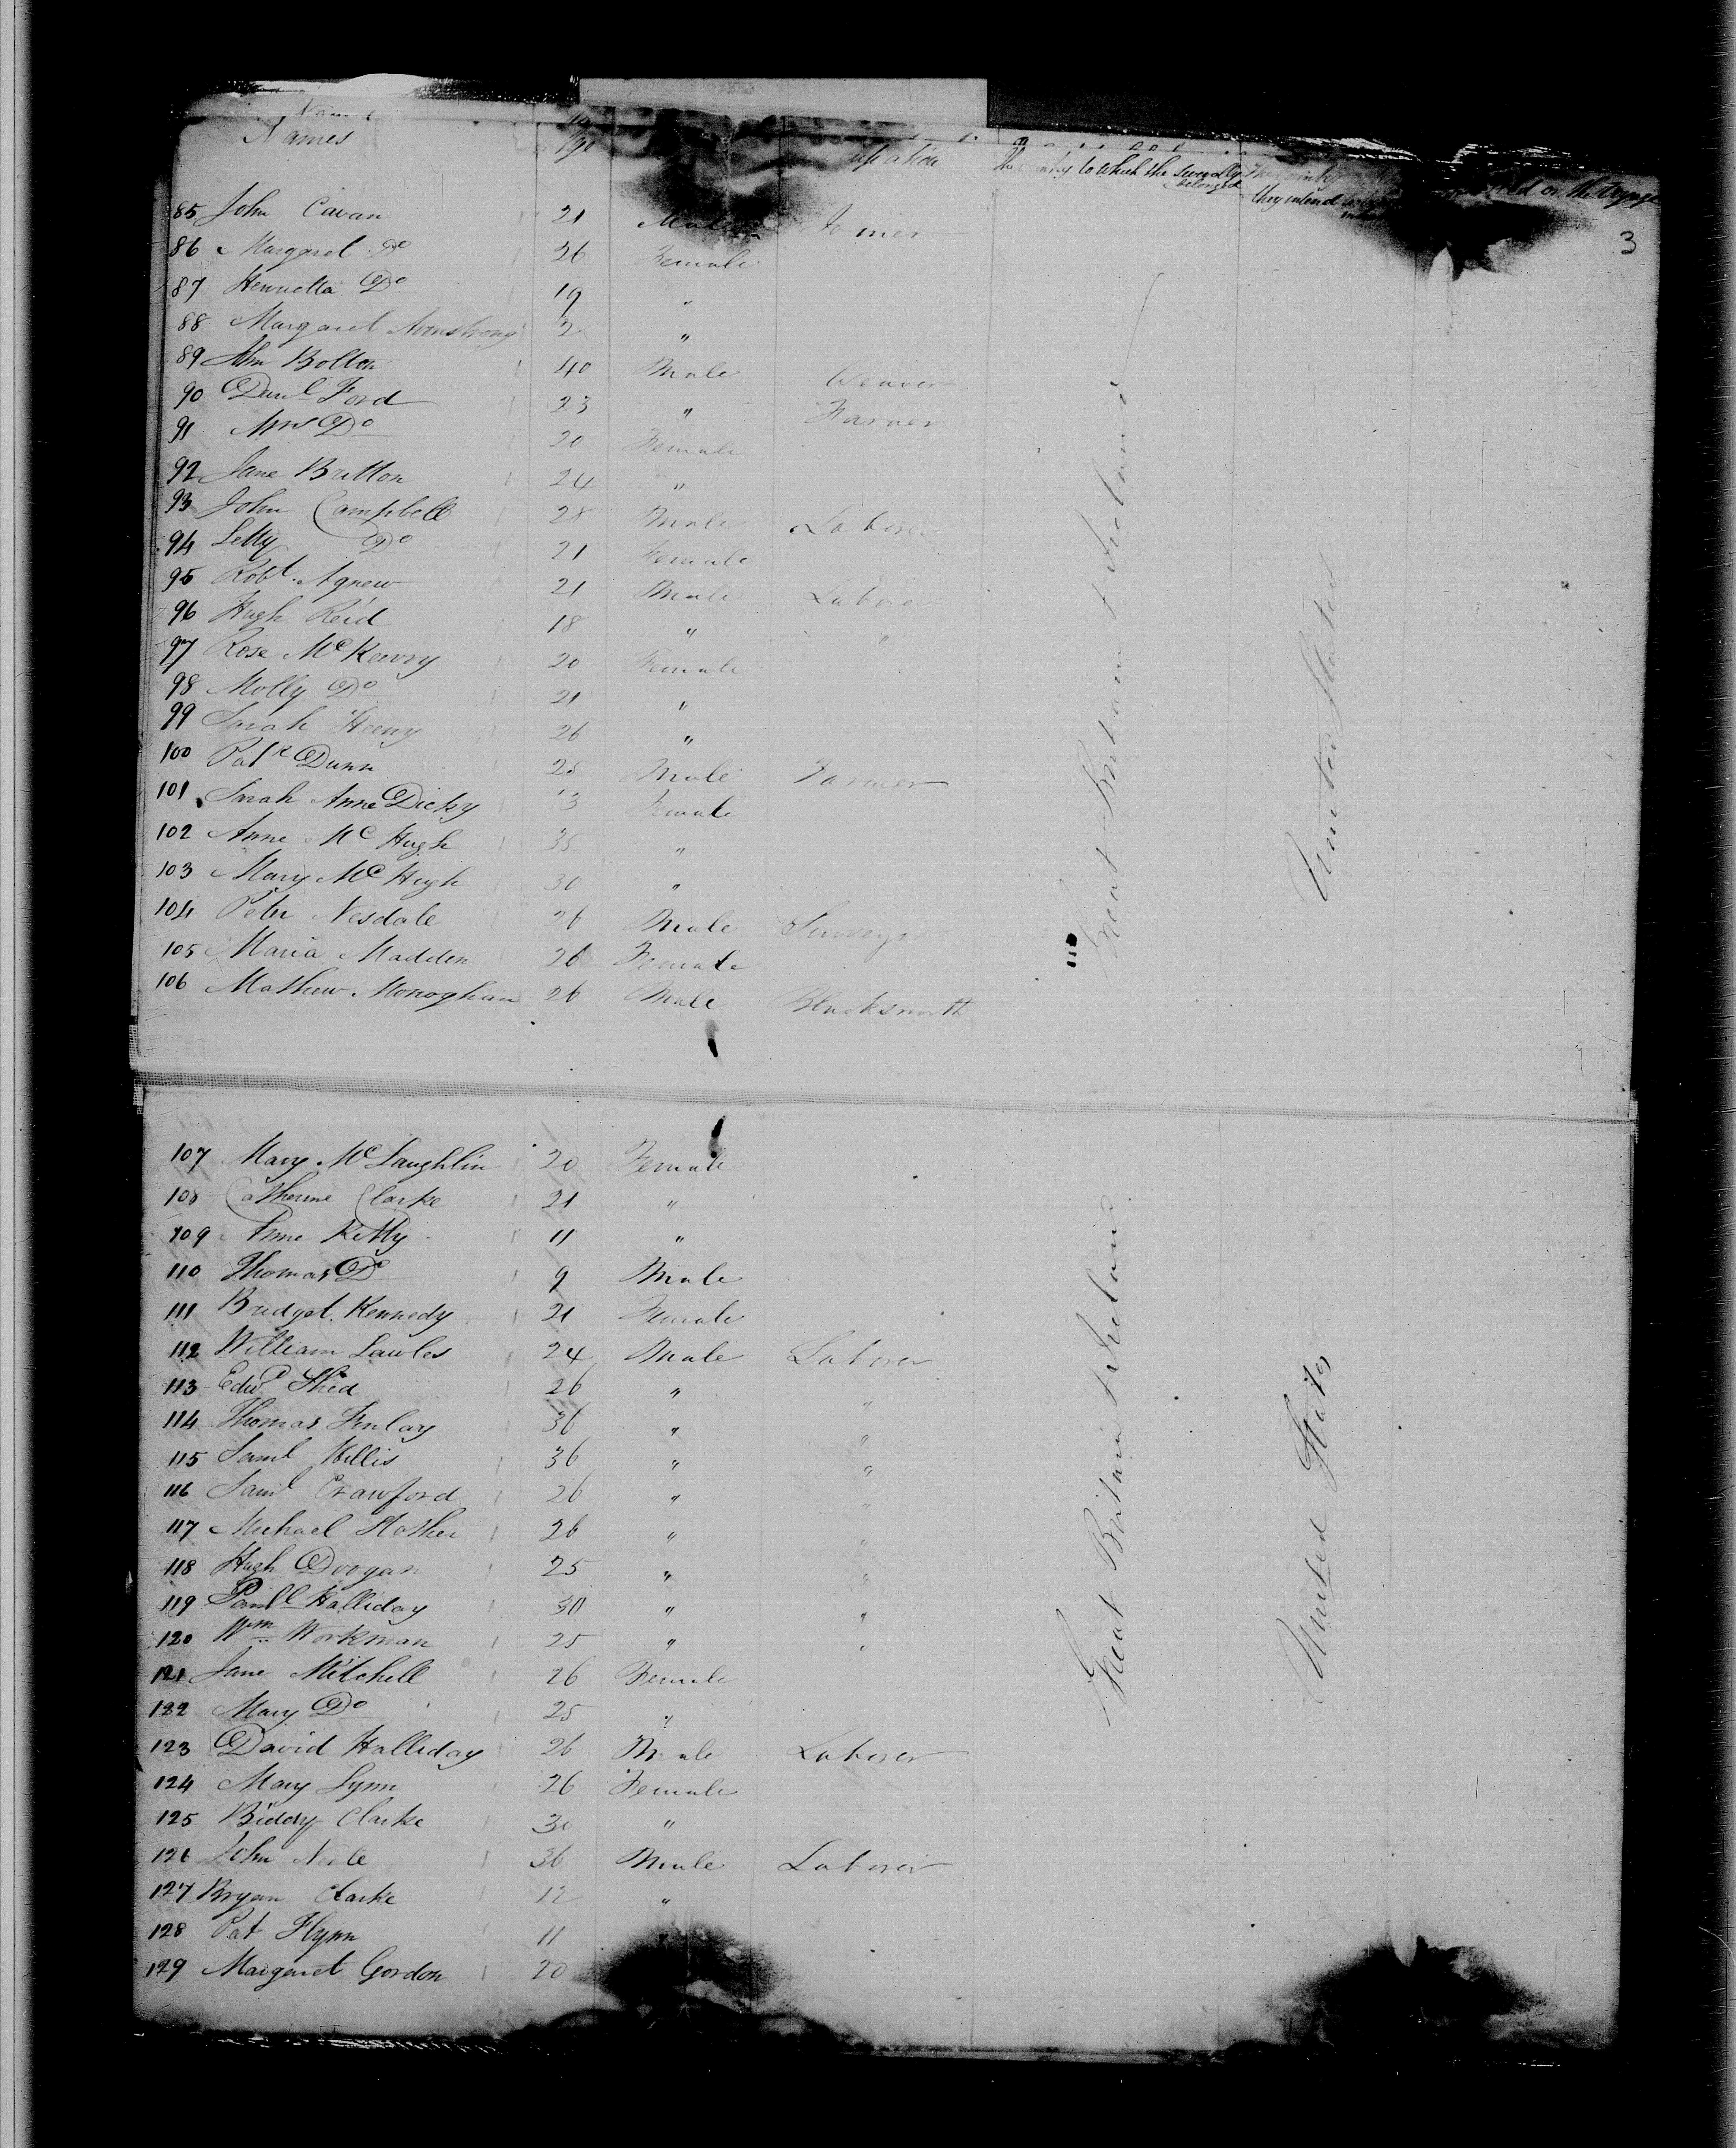 Names
Names Age upation The Country to which the severally belonged The Country
they intend died on the Voyage
3
85 John Cavan 21 Male Joiner
86 Margaret Do 26 Female
87 Henrietta Do 19 "
88 Margaret Armstrong 2 "
89 John Bolton 40 Male Weaver
90 Danl Ford 23 " Farmer
91 Mrs Do 20 Female
92 Jane Britton 24 "
93 John Campbell 28 Male Laborer
94 Letty Do 21 Female
95 Robt. Agnew 21 Male Laborer
96 Hugh Reid 18 " "
97 Rose Mc 20 Female
98 Molly Do 21 "
99 Sarah Heeny 26 "
100 Patk Dunn 25 Male Farmer
101 Sarah Anne Dicky 13 Female
102 Anne Mc Hugh 35 "
103 Mary Mc Hugh 30 "
104 Peter Nesdale 26 Male Surveyor
105 Maria Madden 26 Female
106 Mathew Monoghan 26 Male Blacksmith
Great Britain & Ireland
United States
107 Mary McLaughlin 20 Female
108 Catherine Clarke 21 "
109 Anne Kelly 11 "
110 Thomas Do 9 Male
111 Bridget Kennedy 21 Female
112 William Lawles 24 Male Laborer
113 Edwd 26 " "
114 Thomas Finlay 36 " "
115 Saml Willis 36 " "
116 Saml Crawford 26 " "
117 Michael 26 " "
118 Hugh Doogan 25 " "
119 Saml Halliday 30 " "
120 Wm Workman 25 " "
121 Jane Mitchell 26 Female
122 Mary Do 25 "
123 David Halliday 26 Male Laborer
124 Mary Lynn 26 Female
125 Biddy Clarke 30 "
126 John Neile 36 Male Laborer
127 Bryan Clarke 12 "
128 Pat Flynn 11
129 Margaret Gordon 20
Great Britain & Ireland
United States